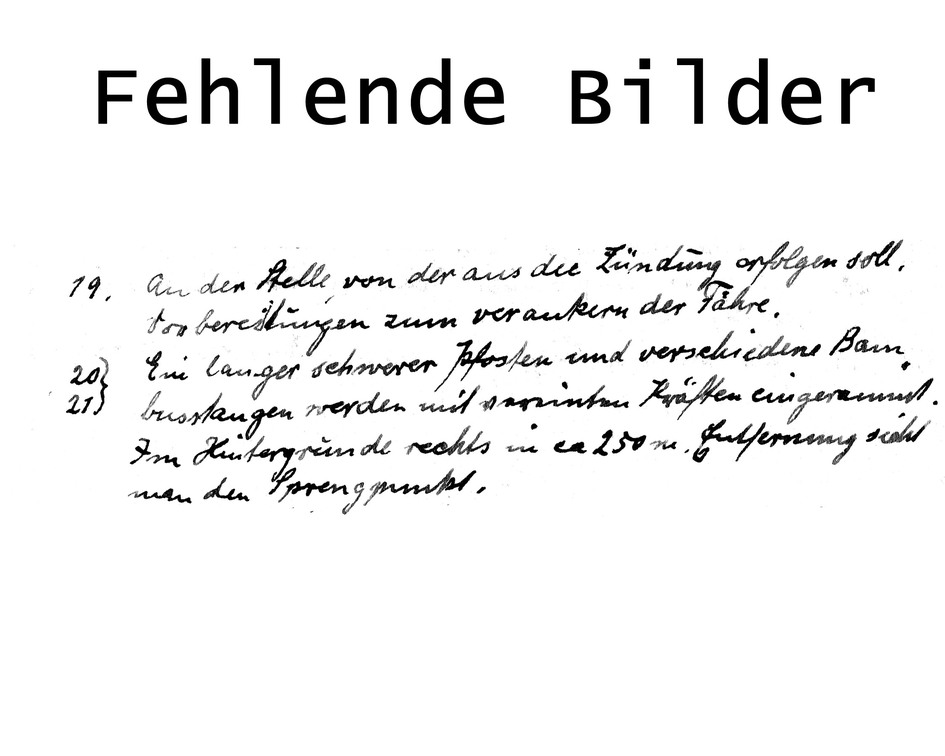 Fehlende Bilder
19. An der Stelle, von der aus die Zündung erfolgen soll.
Vorbereitungen zum verankern der Fähre.
20} Ein langer schwerer Pfosten und verschiedene Bam„
21} busstangen werden mit vereinten Kräften eingerammt.
Im Hintergrunde rechts in ca 250 m. Entfernung sieht
man den Sprengpunkt.